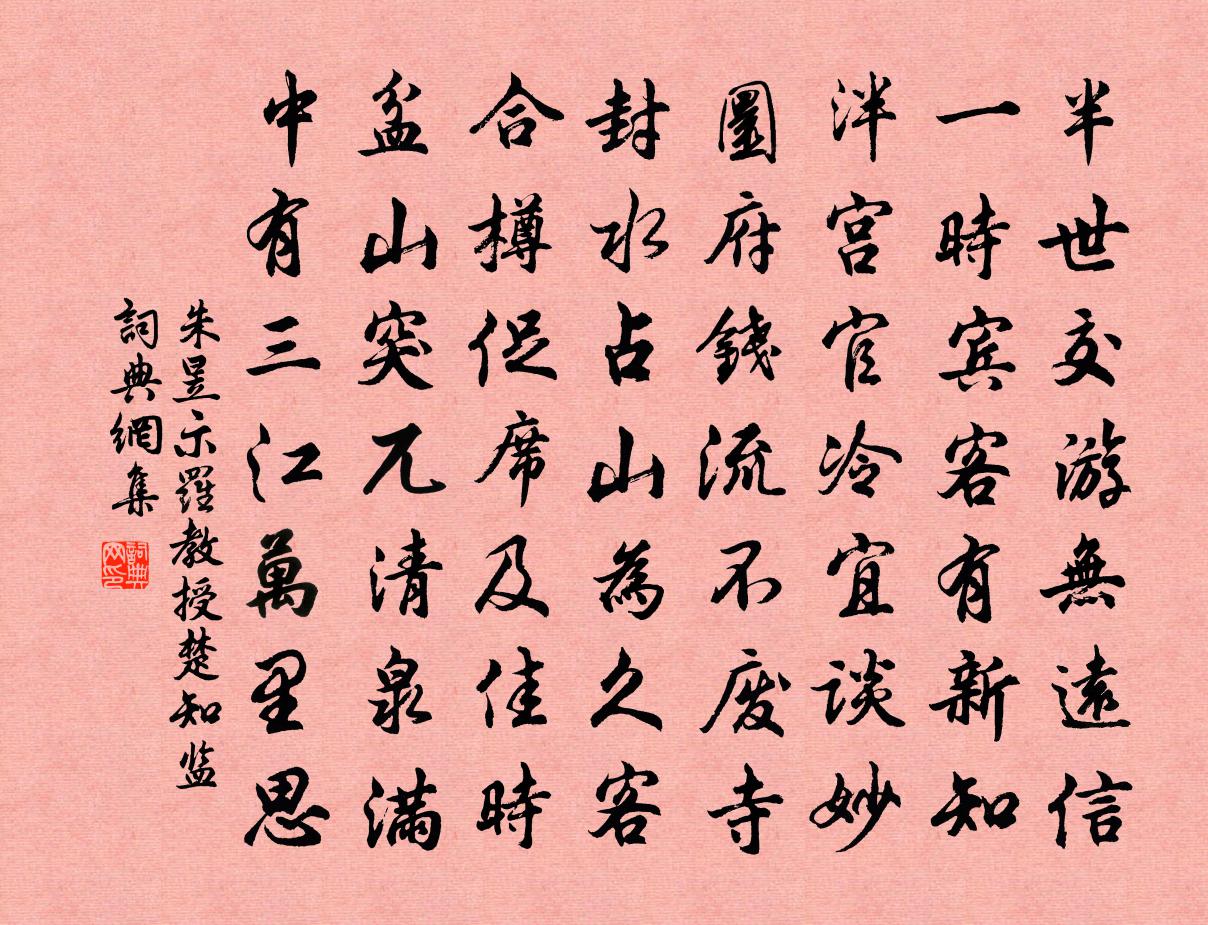 半世交游無遠信
一時宾客有新知
泮宫官冷宜談妙
圜府錢流不废寺
封水占山為久客
合樽促席及佳時
盆山突兀清泉滿
中有三江萬里思
朱昱示羅教授楚知监
詞典網集
詞典网印